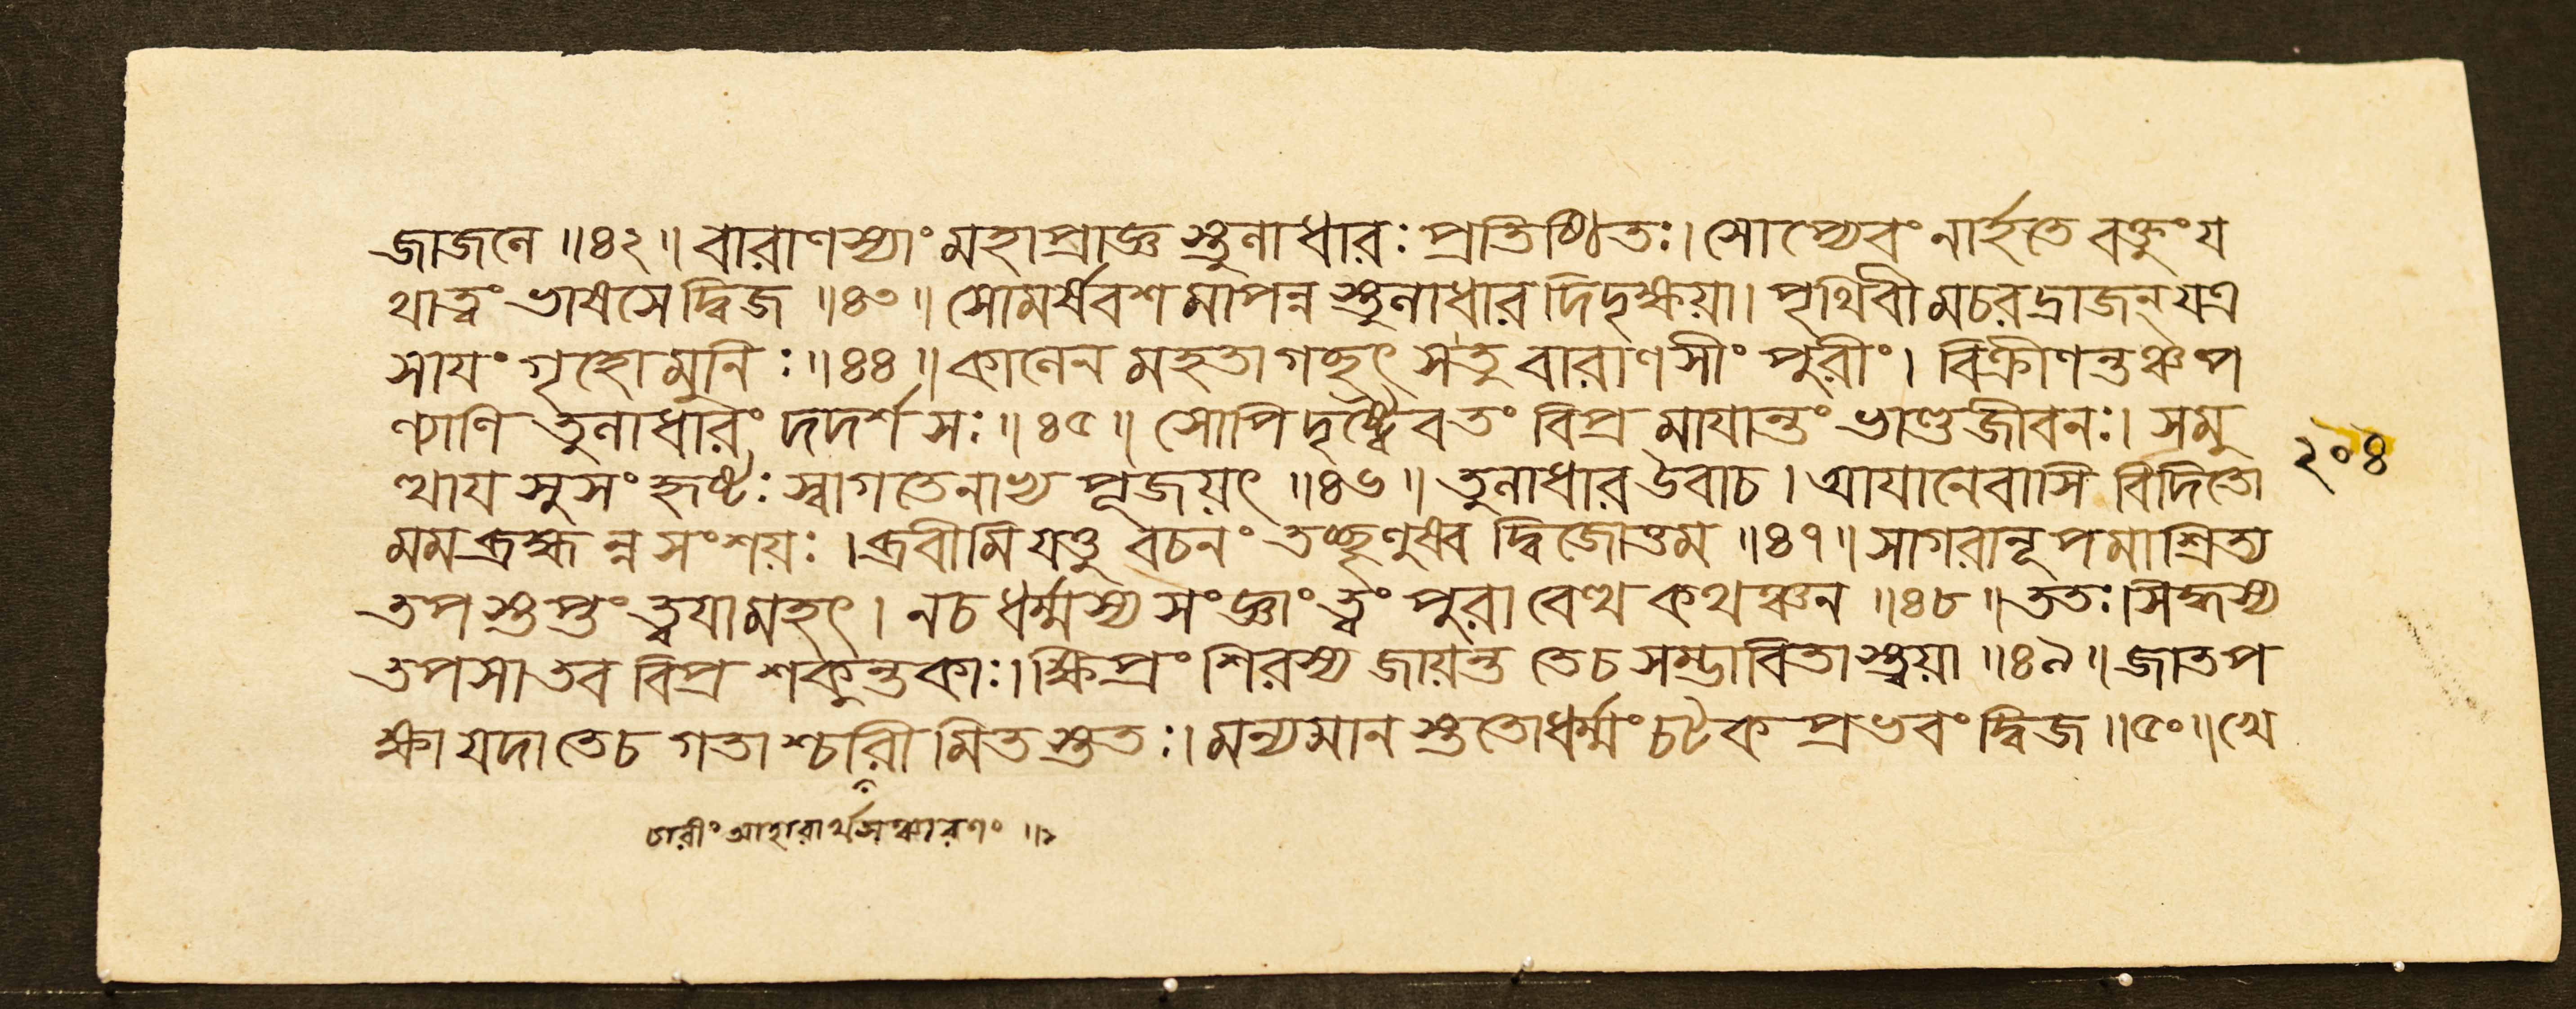 জাজলে ॥৪২॥ বারাণস্যাং মহাপ্রাজ্ঞ স্তুলাধারঃ প্রতিষ্ঠিতঃ। সোপ্যেবং নার্হতে বক্তুং য
থাত্বং ভাষসে দ্বিজ ॥৪৩॥ সোমর্ষবশমাপন্ন স্তুলাধার দিদৃক্ষয়া। পৃথিবীমচরদ্রাজন্ যত্র
সাযং গৃহো মুনিঃ ॥৪৪॥ কালেন মহতাগচ্ছৎ স তু বারাণসীং পুরীং। বিক্রীণন্তঞ্চ প
ণ্যানি তুলাধারং দদর্শ সঃ ॥৪৫॥ সোপি দৃষ্ট্বৈব তং বিপ্রমাযান্তং ভাণ্ডজীবনঃ। সমু
ত্থায সুসংহৃষ্টঃ স্বাগতেনাভ্য পূজয়ৎ ॥৪৬॥ তুলাধার উবাচ। আযানেবাসি বিদিতো
মম ব্রহ্ম ন্ন সংশয়ঃ। ব্রবীমি যত্তু বচনং তচ্ছৃণুষ্ব দ্বিজোত্তম ॥৪৭॥ সাগরানূপমাশ্রিত্য
তপস্তপ্তং ত্বযা মহৎ। ন চ ধর্ম্মস্য সংজ্ঞাং ত্বং পুরা বেত্থ কথঞ্চন ॥৪৮॥ ততঃ।সিদ্ধস্য
তপসা তব বিপ্র শকুন্তকাঃ। ক্ষিপ্রং শিরস্য জায়ন্ত তে চ সম্ভাবিতাস্ত্বয়া ॥৪৯॥ জাতপ
ক্ষা যদা তে চ গতাশ্চারীমিতস্ততঃ। মন্যমানস্ততো ধর্ম্মং চটক প্রভবং দ্বিজ ॥৫০॥ খে
২০৪
চারীং আহারার্থসঞ্চারণং ॥